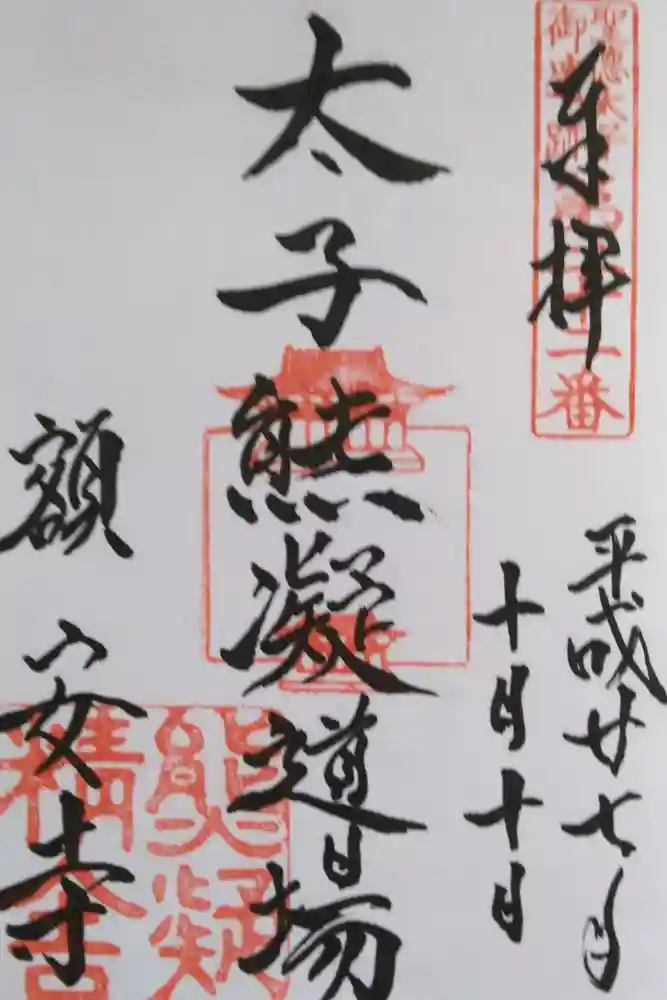 奉拝
聖徳太子
御遺跡
番
平成廿七年
十月十日
太子熊凝道場
額安寺
熊凝
精舎